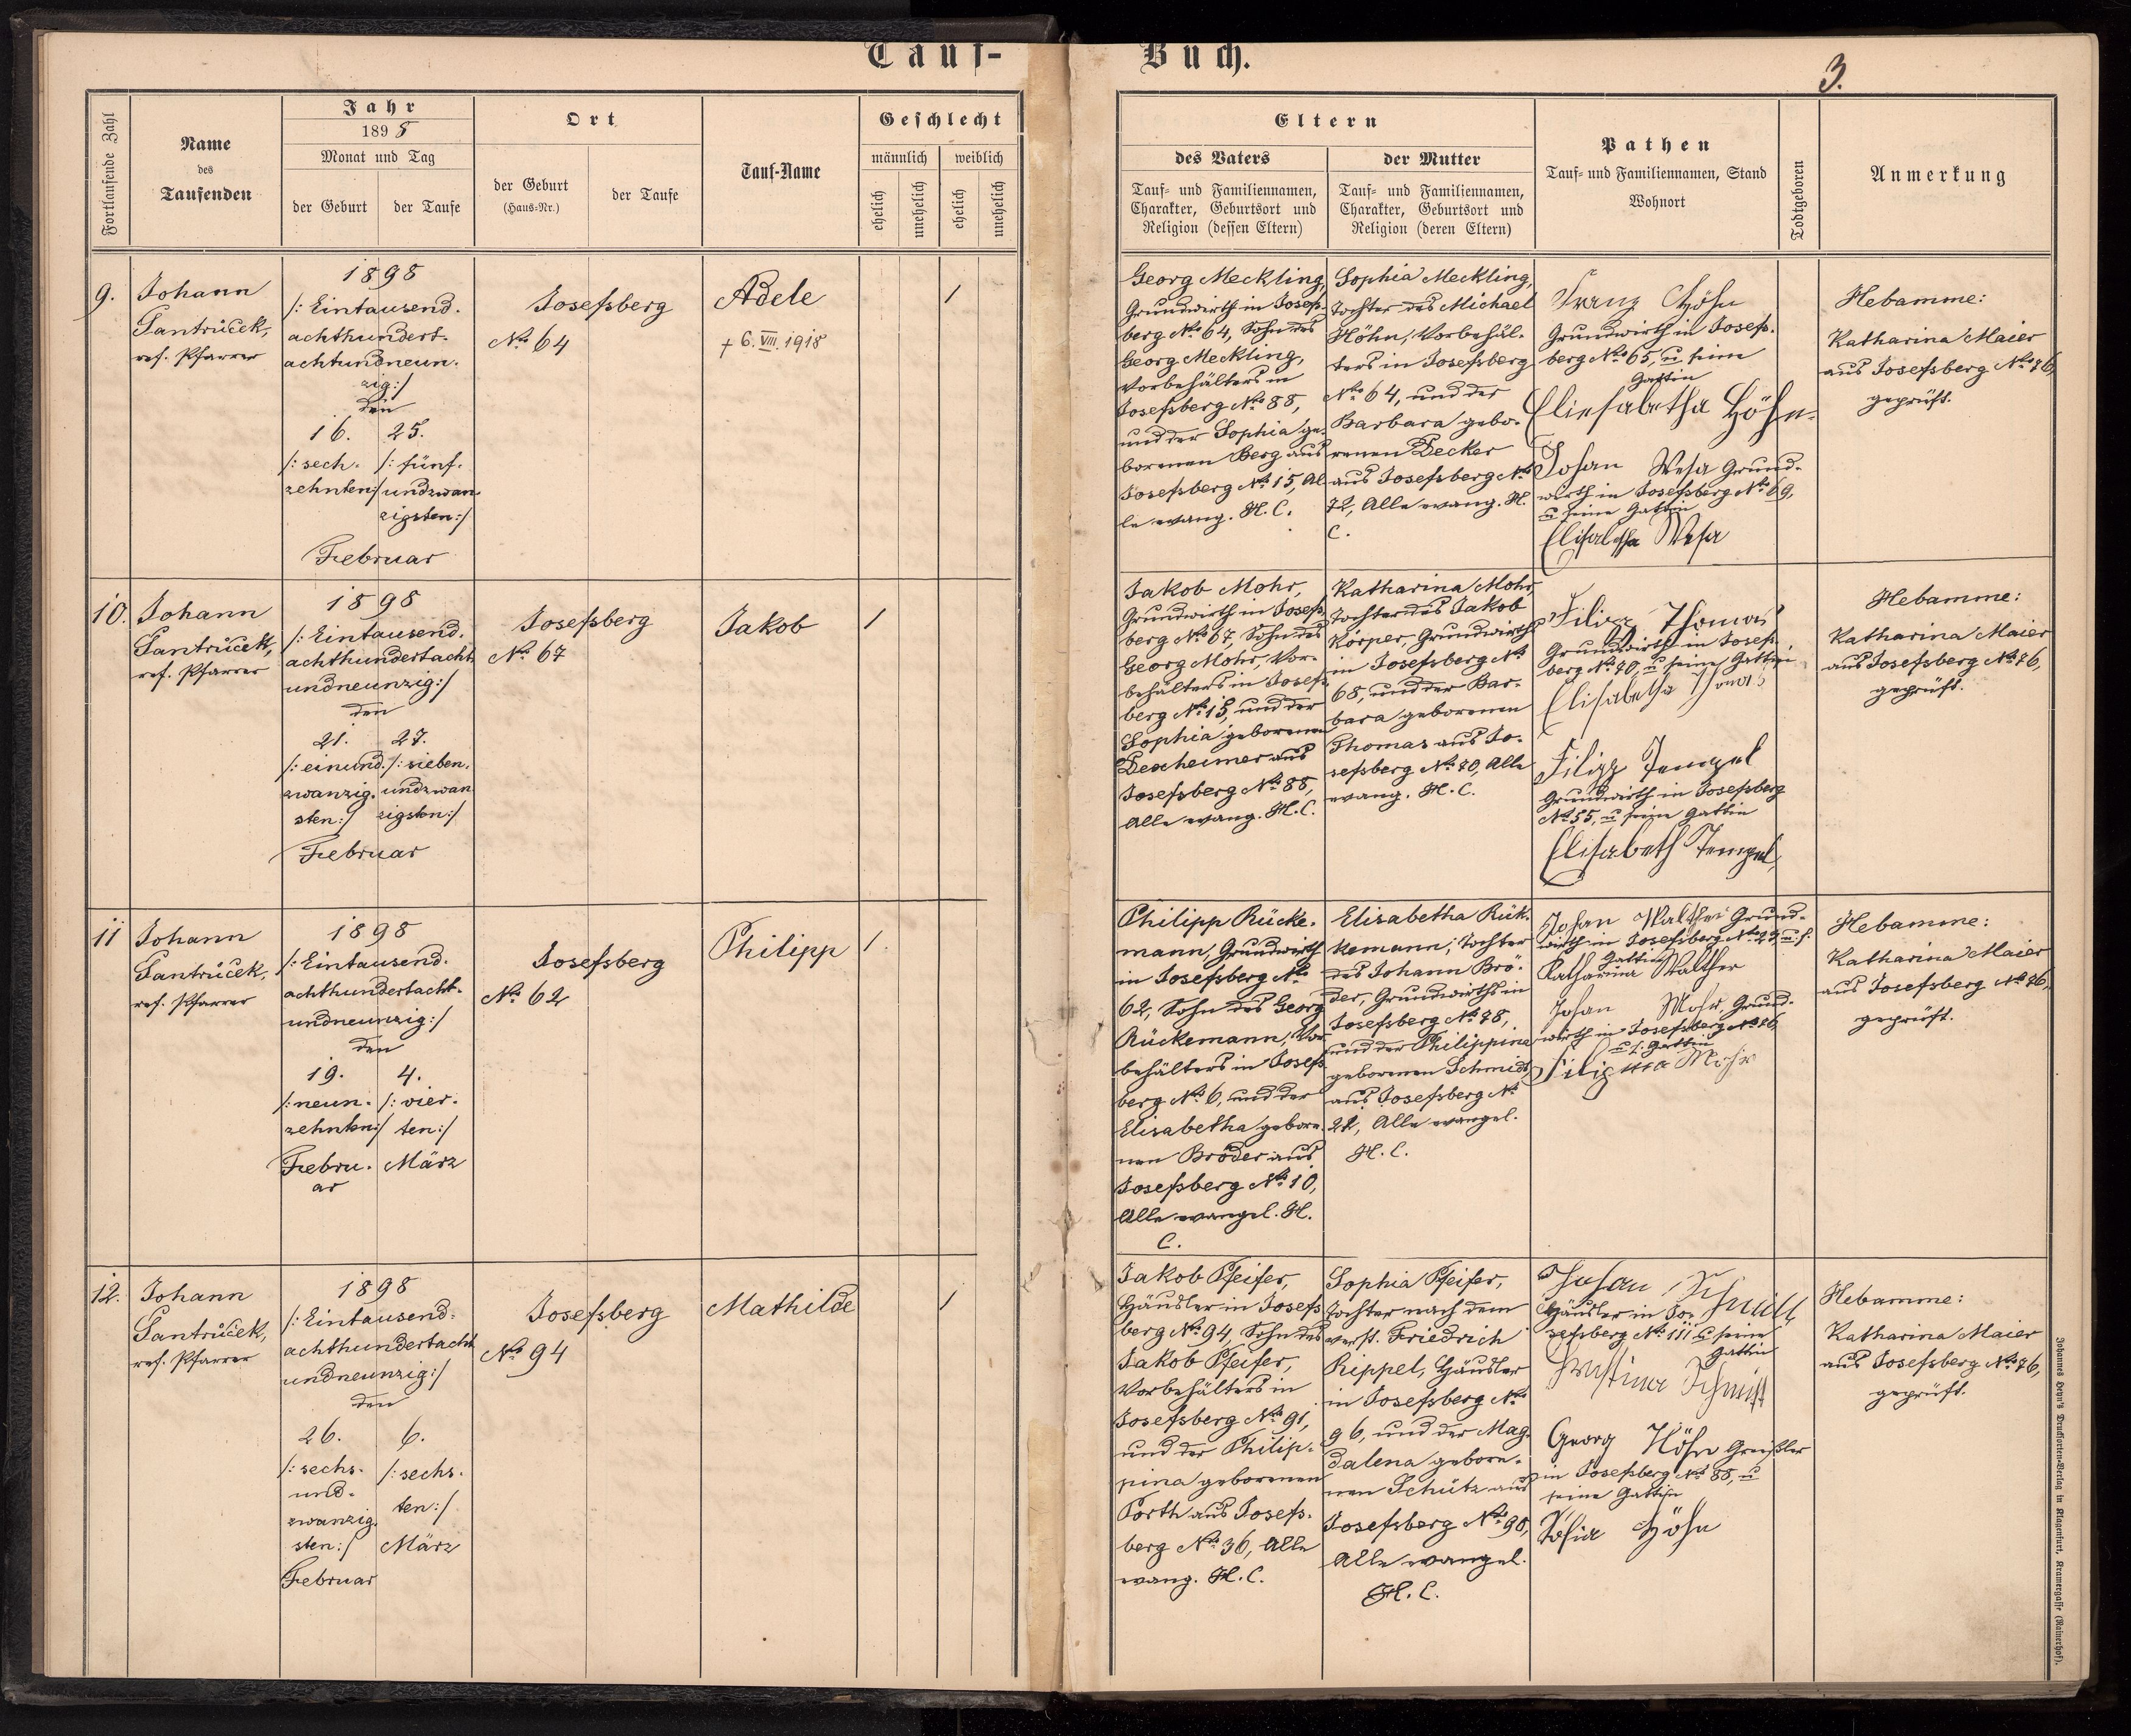 Tauf-
Buch.
3.
Fortlaufende Zahl
Name
des
Taufenden
Jahr
1898
Monat und Tag
der Geburt
der Taufe
Ort
der Geburt
(Haus-Nr.)
der Taufe
Tauf-Name
Geschlecht
männlich
weiblich
ehelich
unehelich
ehelich
unehelich
Eltern
des Vaters
Tauf- und Familiennamen,
Charakter, Geburtsort und
Religion (dessen Eltern)
der Mutter
Tauf- und Familiennamen,
Charakter, Geburtsort und
Religion (deren Eltern)
Pathen
Tauf- und Familiennamen, Stand
Wohnort
Todtgeboren
Anmerkung
9.
Johann
Santrůček,
ref. Pfarrer
1898
/: Eintausend-
achthundert-
achtundneun-
zig :/
den
16.
/: sech-
zehnten :/
25.
/: fünf-
undzwan-
zigsten :/
Februar
Josefsberg
No. 64
Adele
+ 6. VIII. 1918
1
Georg Meckling,
Grundwirth in Josefs-
berg No. 64, Sohn des
Georg Meckling,
Vorbehälters in
Josefsberg No. 88,
und der Sophia ge-
borenen Berg aus
Josefsberg No. 15, Al-
le evang. H. C.
Sophia Meckling,
Tochter des Michael
Höhn, Vorbehäl-
ters in Josefsberg
No. 64, und der
Barbara gebo-
renen Decker
aus Josefsberg No.
72, Alle evang. H.
C.
Franz Höhn
Grundwirth in Josefs-
berg No. 65, u. seine
Gattin
Eliesabetha Höhn.
Johan Wesa Grund-
wirth in Josefsberg No. 69,
u. seine Gattin
Elisabetha Wesa
Hebamme:
Katharina Maier
aus Josefsberg No. 76,
geprüft.
10.
Johann
Santrůček,
ref. Pfarrer
1898
/: Eintausend-
achthundertacht-
undneunzig :/
den
21.
/: einund-
zwanzig-
sten :/
27.
/: sieben-
undzwan-
zigsten :/
Februar
Josefsberg
No. 67
Jakob
1
Jakob Mohr,
Grundwirth in Josefs-
berg No. 67, Sohn des
Georg Mohr, Vor-
behälters in Josefs-
berg No. 15, und der
Sophia geborenen
Dexheimer aus
Josefsberg No. 88,
Alle evang. H. C.
Katharina Mohr,
Tochter des Jakob
Körper, Grundwirths
in Josefsberg No.
68, und der Bar-
bara geborenen
Thomas aus Jo-
sefsberg No. 70, Alle
evang. H. C.
Filipp Thomas
Grundwirth in Josefs-
berg No. 70, u. seine Gattin
Elisabetha Thomas
Filipp Tempel
Grundwirth in Josefsberg
No. 55, u. seine Gattin
Elisabeth Tempel
Hebamme:
Katharina Maier
aus Josefsberg No. 76,
geprüft.
11
Johann
Santrůček,
ref. Pfarrer
1898
/: Eintausend-
achthundertacht-
undneunzig :/
den
19.
/: neun-
zehnten :/
Febru-
ar
4.
/: vier-
ten :/
März
Josefsberg
No. 62
Philipp
1.
Philipp Rücke-
mann, Grundwirth
in Josefsberg No.
62, Sohn des Georg
Rückemann, Vor-
behälters in Josefs-
berg No. 6, und der
Elisabetha gebore-
nen Bröder aus
Josefsberg No. 10,
Alle evangel. H.
C.
Elisabetha Rük-
kemann, Tochter
des Johann Brö-
der, Grundwirths in
Josefsberg No. 78,
und der Philippina
geborenen Schmidt
aus Josefsberg No.
22, Alle evangel.
H. C.
Johan Walther Grund-
wirth in Josefsberg No. 23, u. s.
Gattin
Katharina Walther
Johan Mohr, Grund-
wirth in Josefsberg No. 26
u. s. Gattin
Mohr
Hebamme:
Katharina Maier
aus Josefsberg No. 76,
geprüft.
12.
Johann
Santrůček,
ref. Pfarrer
1898
/: Eintausend-
achthundertacht-
undneunzig :/
den
26.
/: sechs-
und-
zwanzig-
sten :/
Februar
6.
/: sechs-
ten :/
März
Josefsberg
No. 94
Mathilde
1
Jakob Pfeifer,
Häusler in Josefs-
berg No. 94, Sohn des
Jakob Pfeifer,
Vorbehälters in
Josefsberg No. 91,
und der Philip-
pina geborenen
Porth aus Josefs-
berg No. 36, Alle
evang. H. C.
Sophia Pfeifer,
Tochter nach dem
verst. Friedrich
Rippel, Häusler
in Josefsberg No.
96, und der Mag-
dalena gebore-
nen Schütz aus
Josefsberg No. 90,
Alle evangel.
H. C.
Johan Schmidt
Häusler in Jo-
sefsberg No. 111 u. seine
Gattin
Schmidt
Georg Höhn Greißler
in Josefsberg No. 88, u.
seine Gattin
Sofia Höhn
Hebamme:
Katharina Maier
aus Josefsberg No. 76,
geprüft.
Johannes Heyn's Drucksorten-Verlag in Klagenfurt, Kramergasse (Rainerhof).